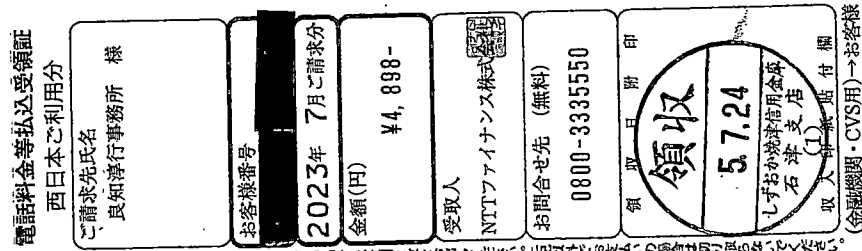 電話料金等払込受領証
西日本ご利用分
ご請求先氏名
良知淳行事務所 様
お客様番号
2023年 7月ご請求分
金額(円)
¥4,898-
受取人
NTTファイナンス株式会社
お問合せ先 (無料)
0800-3335550
領収日附印
領収
5.7.24
しずおか焼津信用金庫
石津支店
(1)
収入印紙貼付欄
(金融機関・CVS用)→お客様